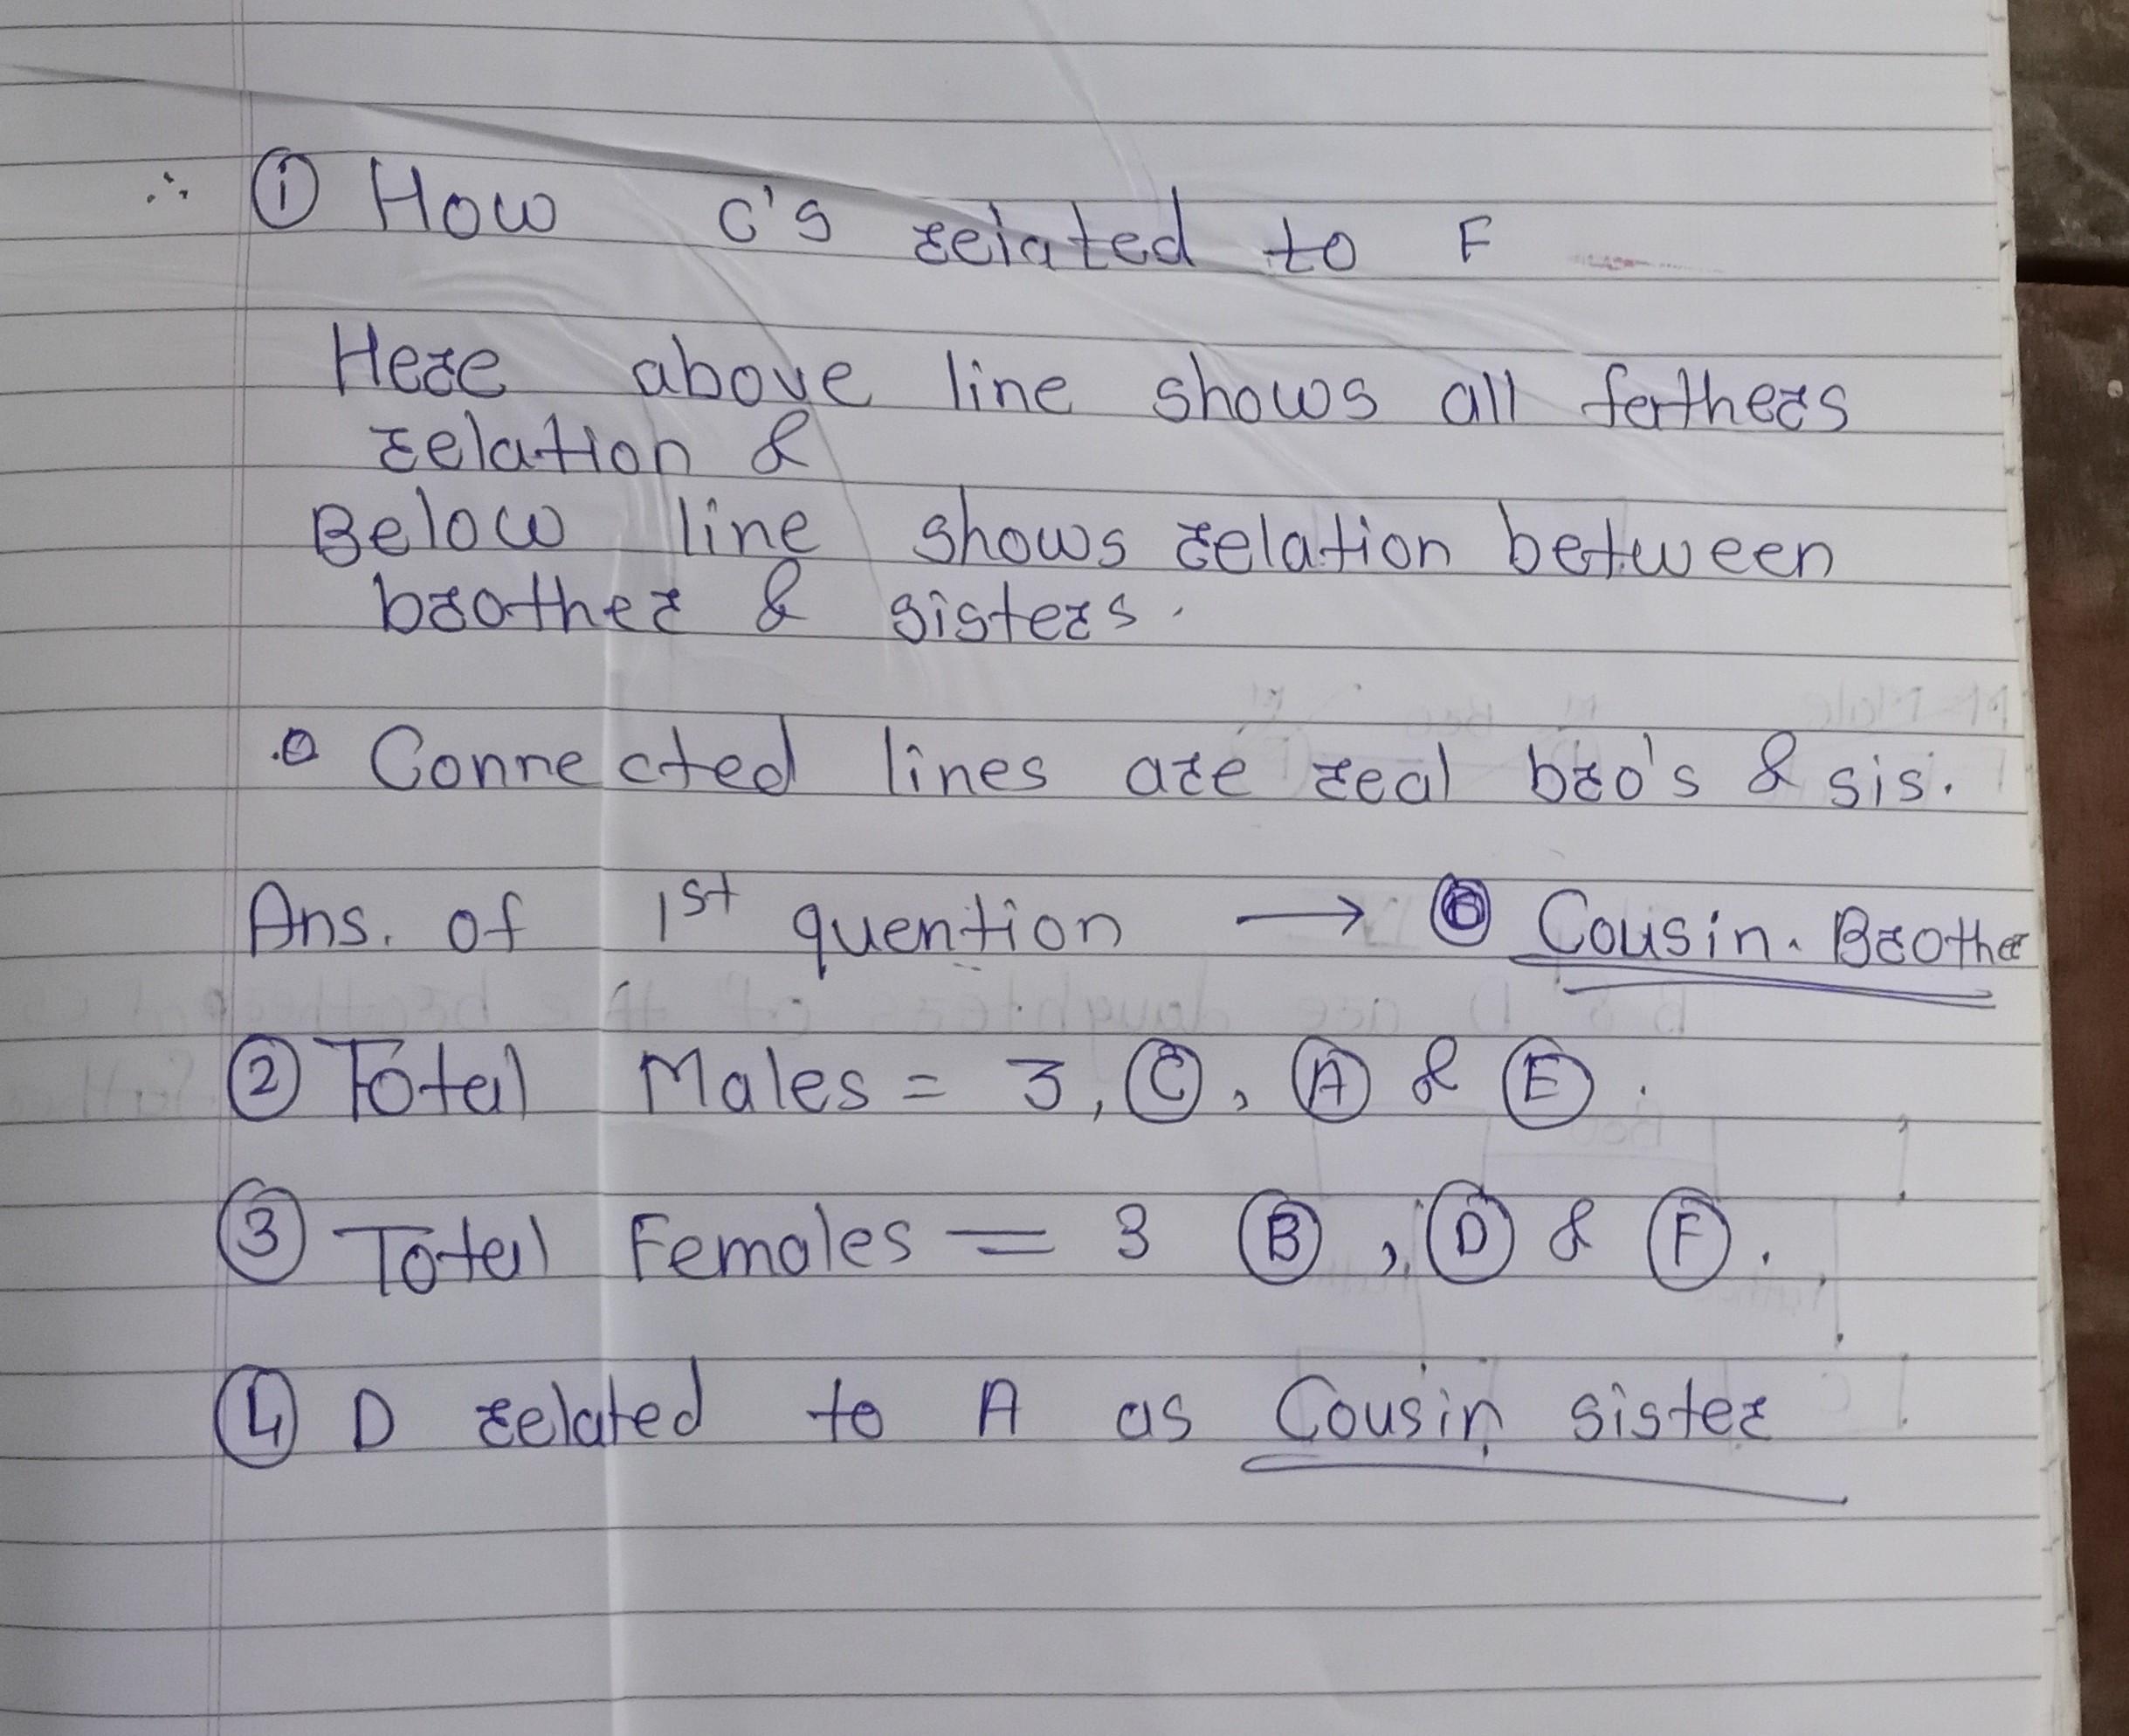 ∴ ① How C's related to F
Here above line shows all fathers
relation &
Below line shows relation between
brother & sisters.
Connected lines are real bro's & sis.
Ans. of 1st quention → Cousin. Brother
② Total Males = 3, Ⓒ, Ⓐ & Ⓔ.
③ Total Females = 3 Ⓑ, Ⓓ & Ⓕ.
④ D related to A as Cousin sister